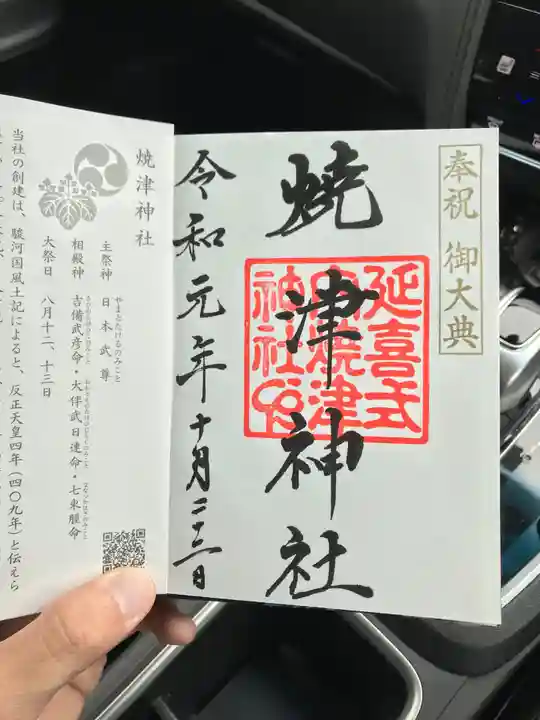 奉祝 御大典
焼津神社
延喜式
内焼津
神社印
令和元年十月二十二日
焼津神社
やまとたけるのみこと
主祭神 日本武尊
相殿神 吉備武彦命・大伴武日連命・七束脛命
大祭日 八月十二、十三日
当社の創建は、駿河国風土記によると、反正天皇四年(四〇九年)と伝えら